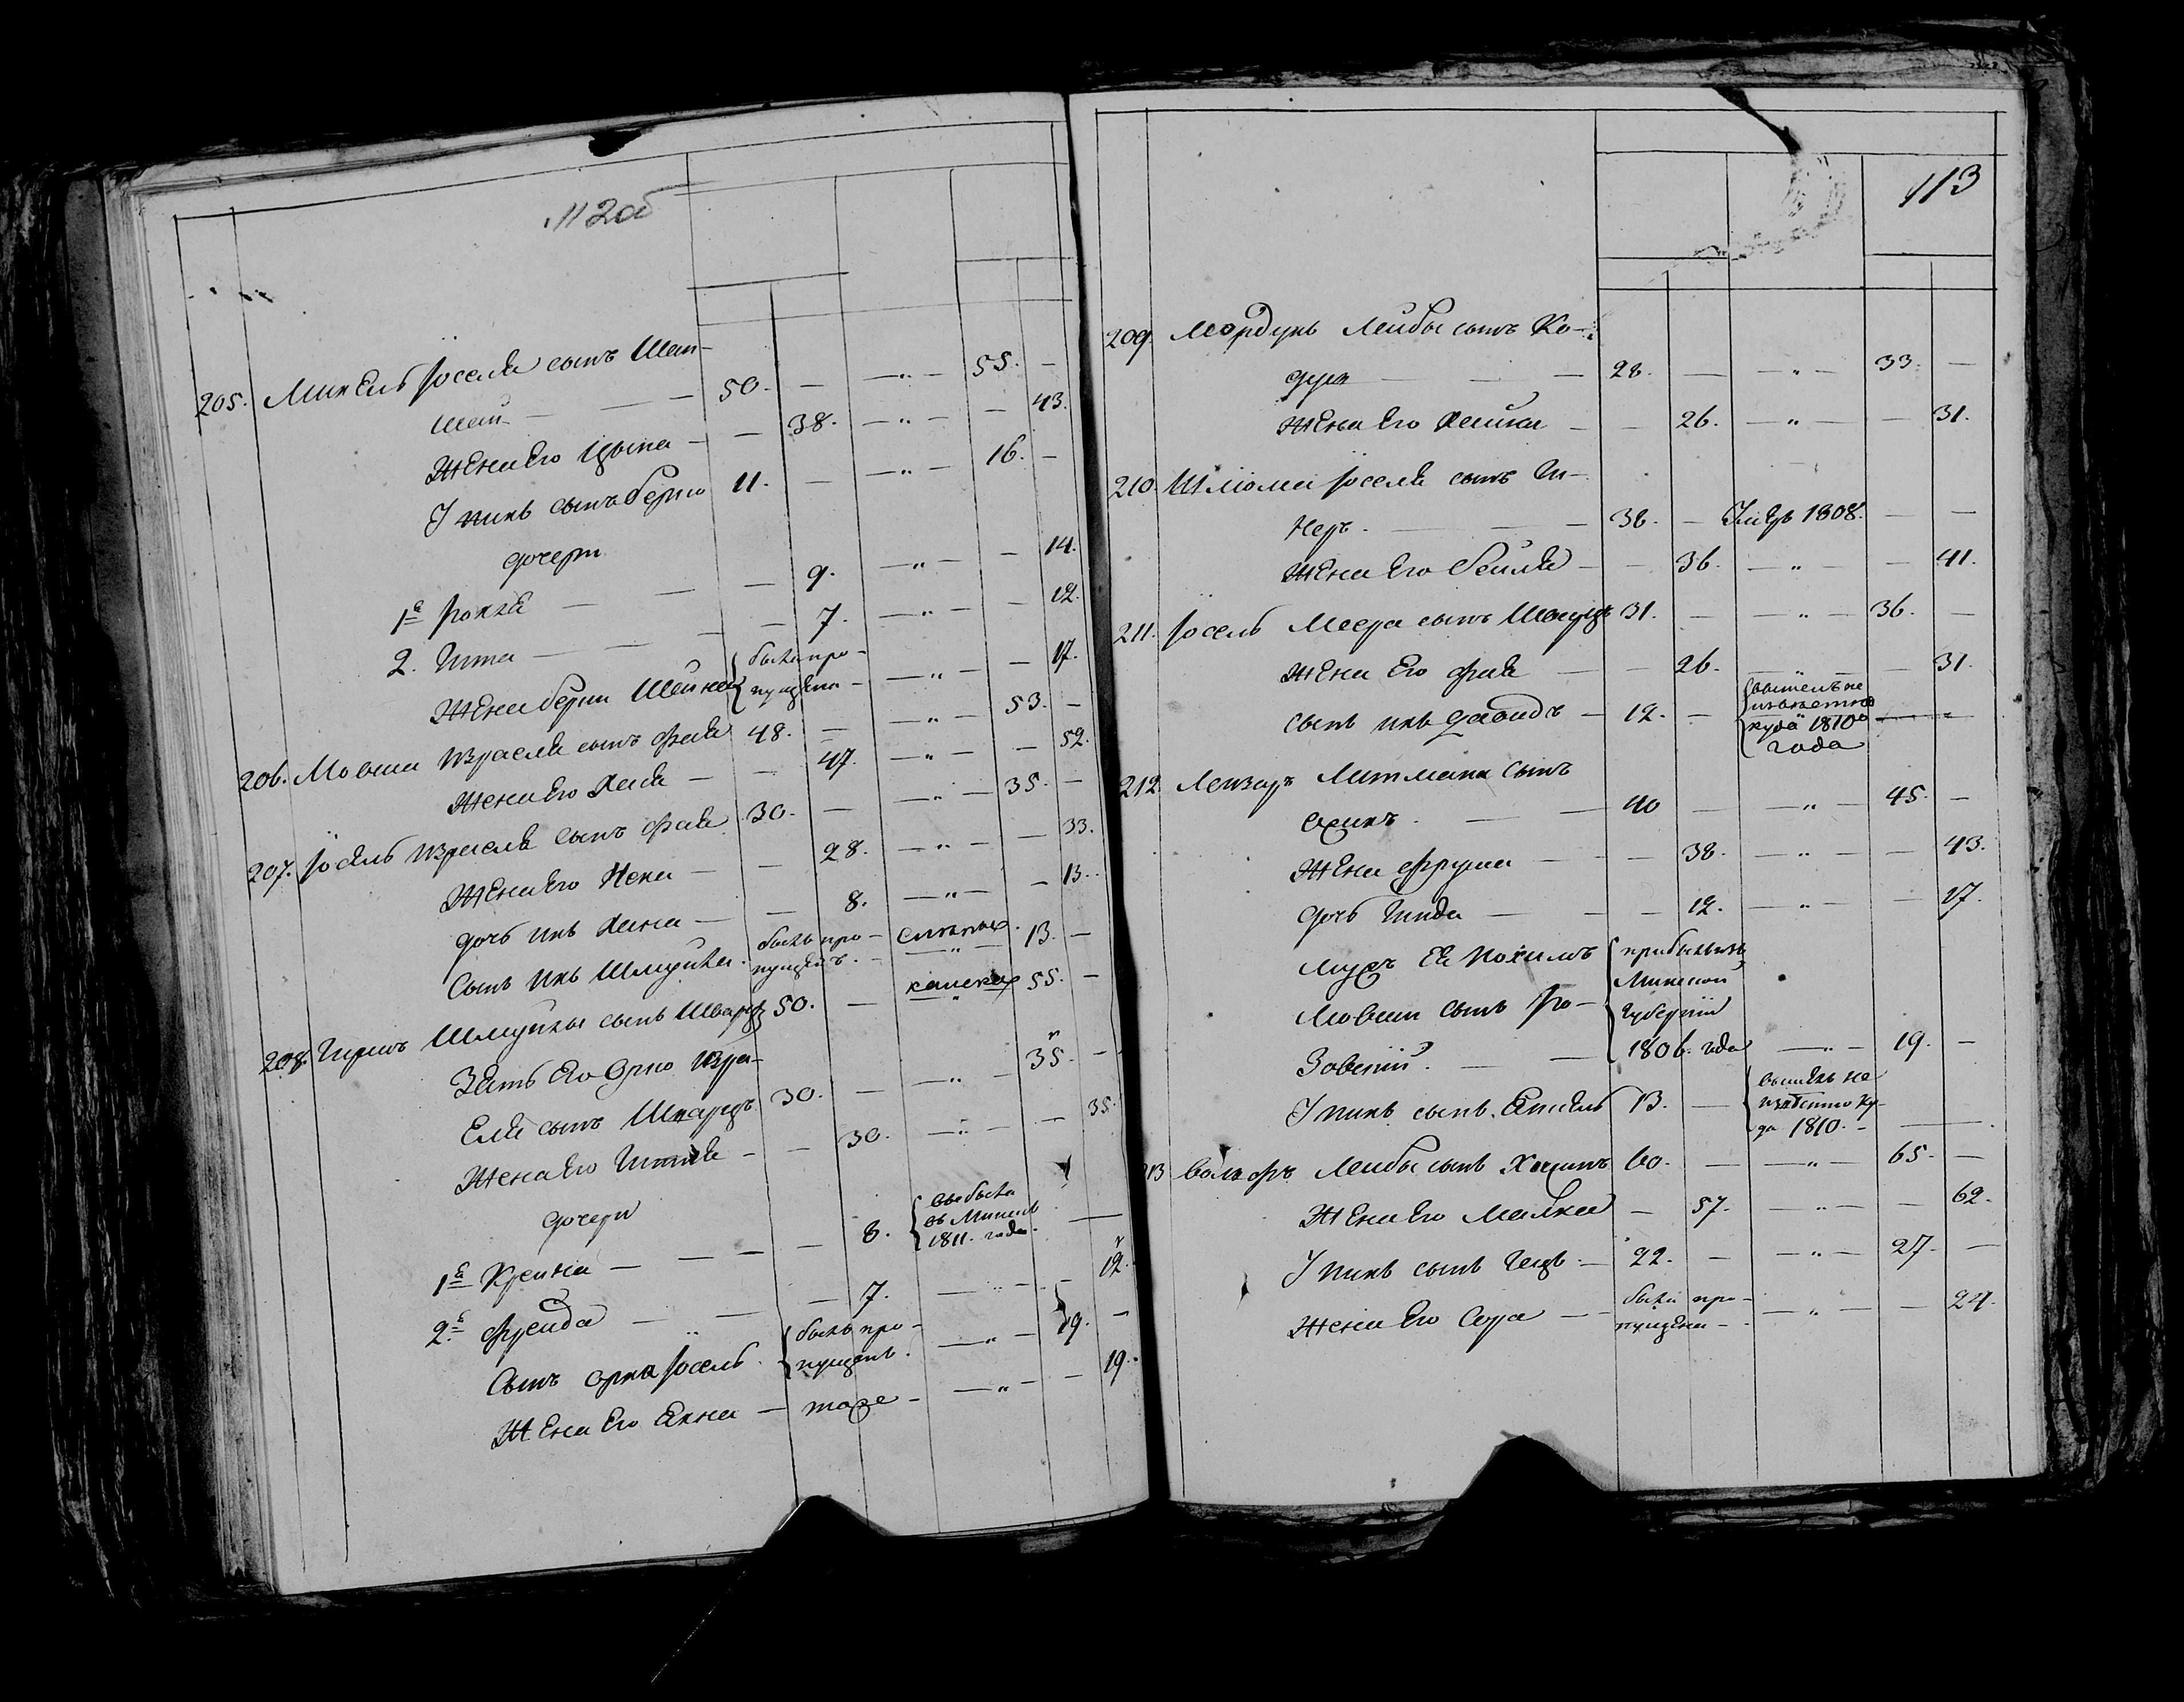 112об
205. Микель Іоселя сынъ Шап-
шай — 50. — — „ — 55. —
Жена Его Цыпа — — 38. — „ — — 43.
У нихъ сынъ Берко 11. — — „ — 16. —
дочери
1я Рохля — — — 9. — „ — — 14.
2. Гита — — — 7. — „ — — 12.
Жена Берки Шейна была про-
пущена — — „ — — 17.
206. Мовша Израеля сынъ Фай 48. — — „ — 53. —
Жена Его Хая — — 47. — „ — — 52.
207. Іосель Израеля сынъ Фай 30. — — „ — 35. —
Жена Его Неха — — 28. — „ — — 33.
дочь ихъ Хана — — 8. — „ — — 13.
Сынъ ихъ Шмуйла былъ про-
пущенъ. — „ — 13. —
208. Гиршъ Шмуйлы сынъ Шварцъ 50. — „ 55. —
Зять Его Орко Изра-
Еля сынъ Шварцъ 30. — — „ — 35. —
Жена Его — — 30. — „ — — 35.
дочери
1я Крейна — — — 8. выбыла
въ Минскъ
1811. года. —
2я Фрейда — — — 7. — „ — — 12.
Сынъ Орка Іосель былъ про-
пущенъ. — „ — 19. —
Жена Его Ехна — тоже — — „ — — 19.
113
209. Мордухъ Лейбы сынъ Ко-
— — 28. — — „ — 33. —
Жена Его Хашка — — 26. — „ — — 31.
210. Шлiома Іоселя сынъ Ги-
неръ. — — 38. — Умеръ 1808. — —
Жена Его Бейля — — 36. — „ — — 41.
211. Іосель Меера сынъ Шварцъ 31. — — „ — 36. —
Жена Его Фая — — 26. — „ — — 31.
сынъ ихъ Давидъ — 12. — вышелъ не
известно
куда 1810го
года — „
212. Лейзаръ Литмана сынъ
— — 40 — — „ — 45. —
Жена Фрума — — 38. — „ — — 43.
дочь Гинда — — 12. — „ — — 17.
мужъ Ея прибылъ изъ
Мовши сынъ Ро- Минской
Губернiи
Зовскiй. — 1806. года — „ — 19. —
У нихъ сынъ 13. — вышелъ не
известно ку-
да 1810. — —
213 Вольфъ Лейбы сынъ 60. — — „ — 65. —
Жена Его Малка — 57. — „ — — 62.
У нихъ сынъ Гецъ — 22. — — „ — 27. —
Жена Его Сора — была про-
пущена — — „ — — 24.